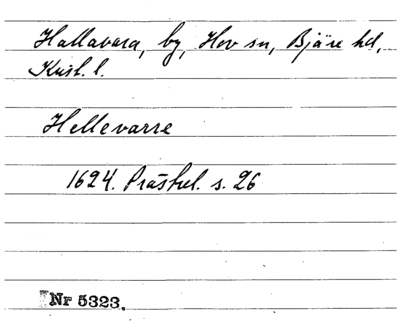 Hallavara, by, Hov sn, Bjäre hd,
Krist. l.
Hellevarre
1624. Prästrel. s. 26
Nr 5323.